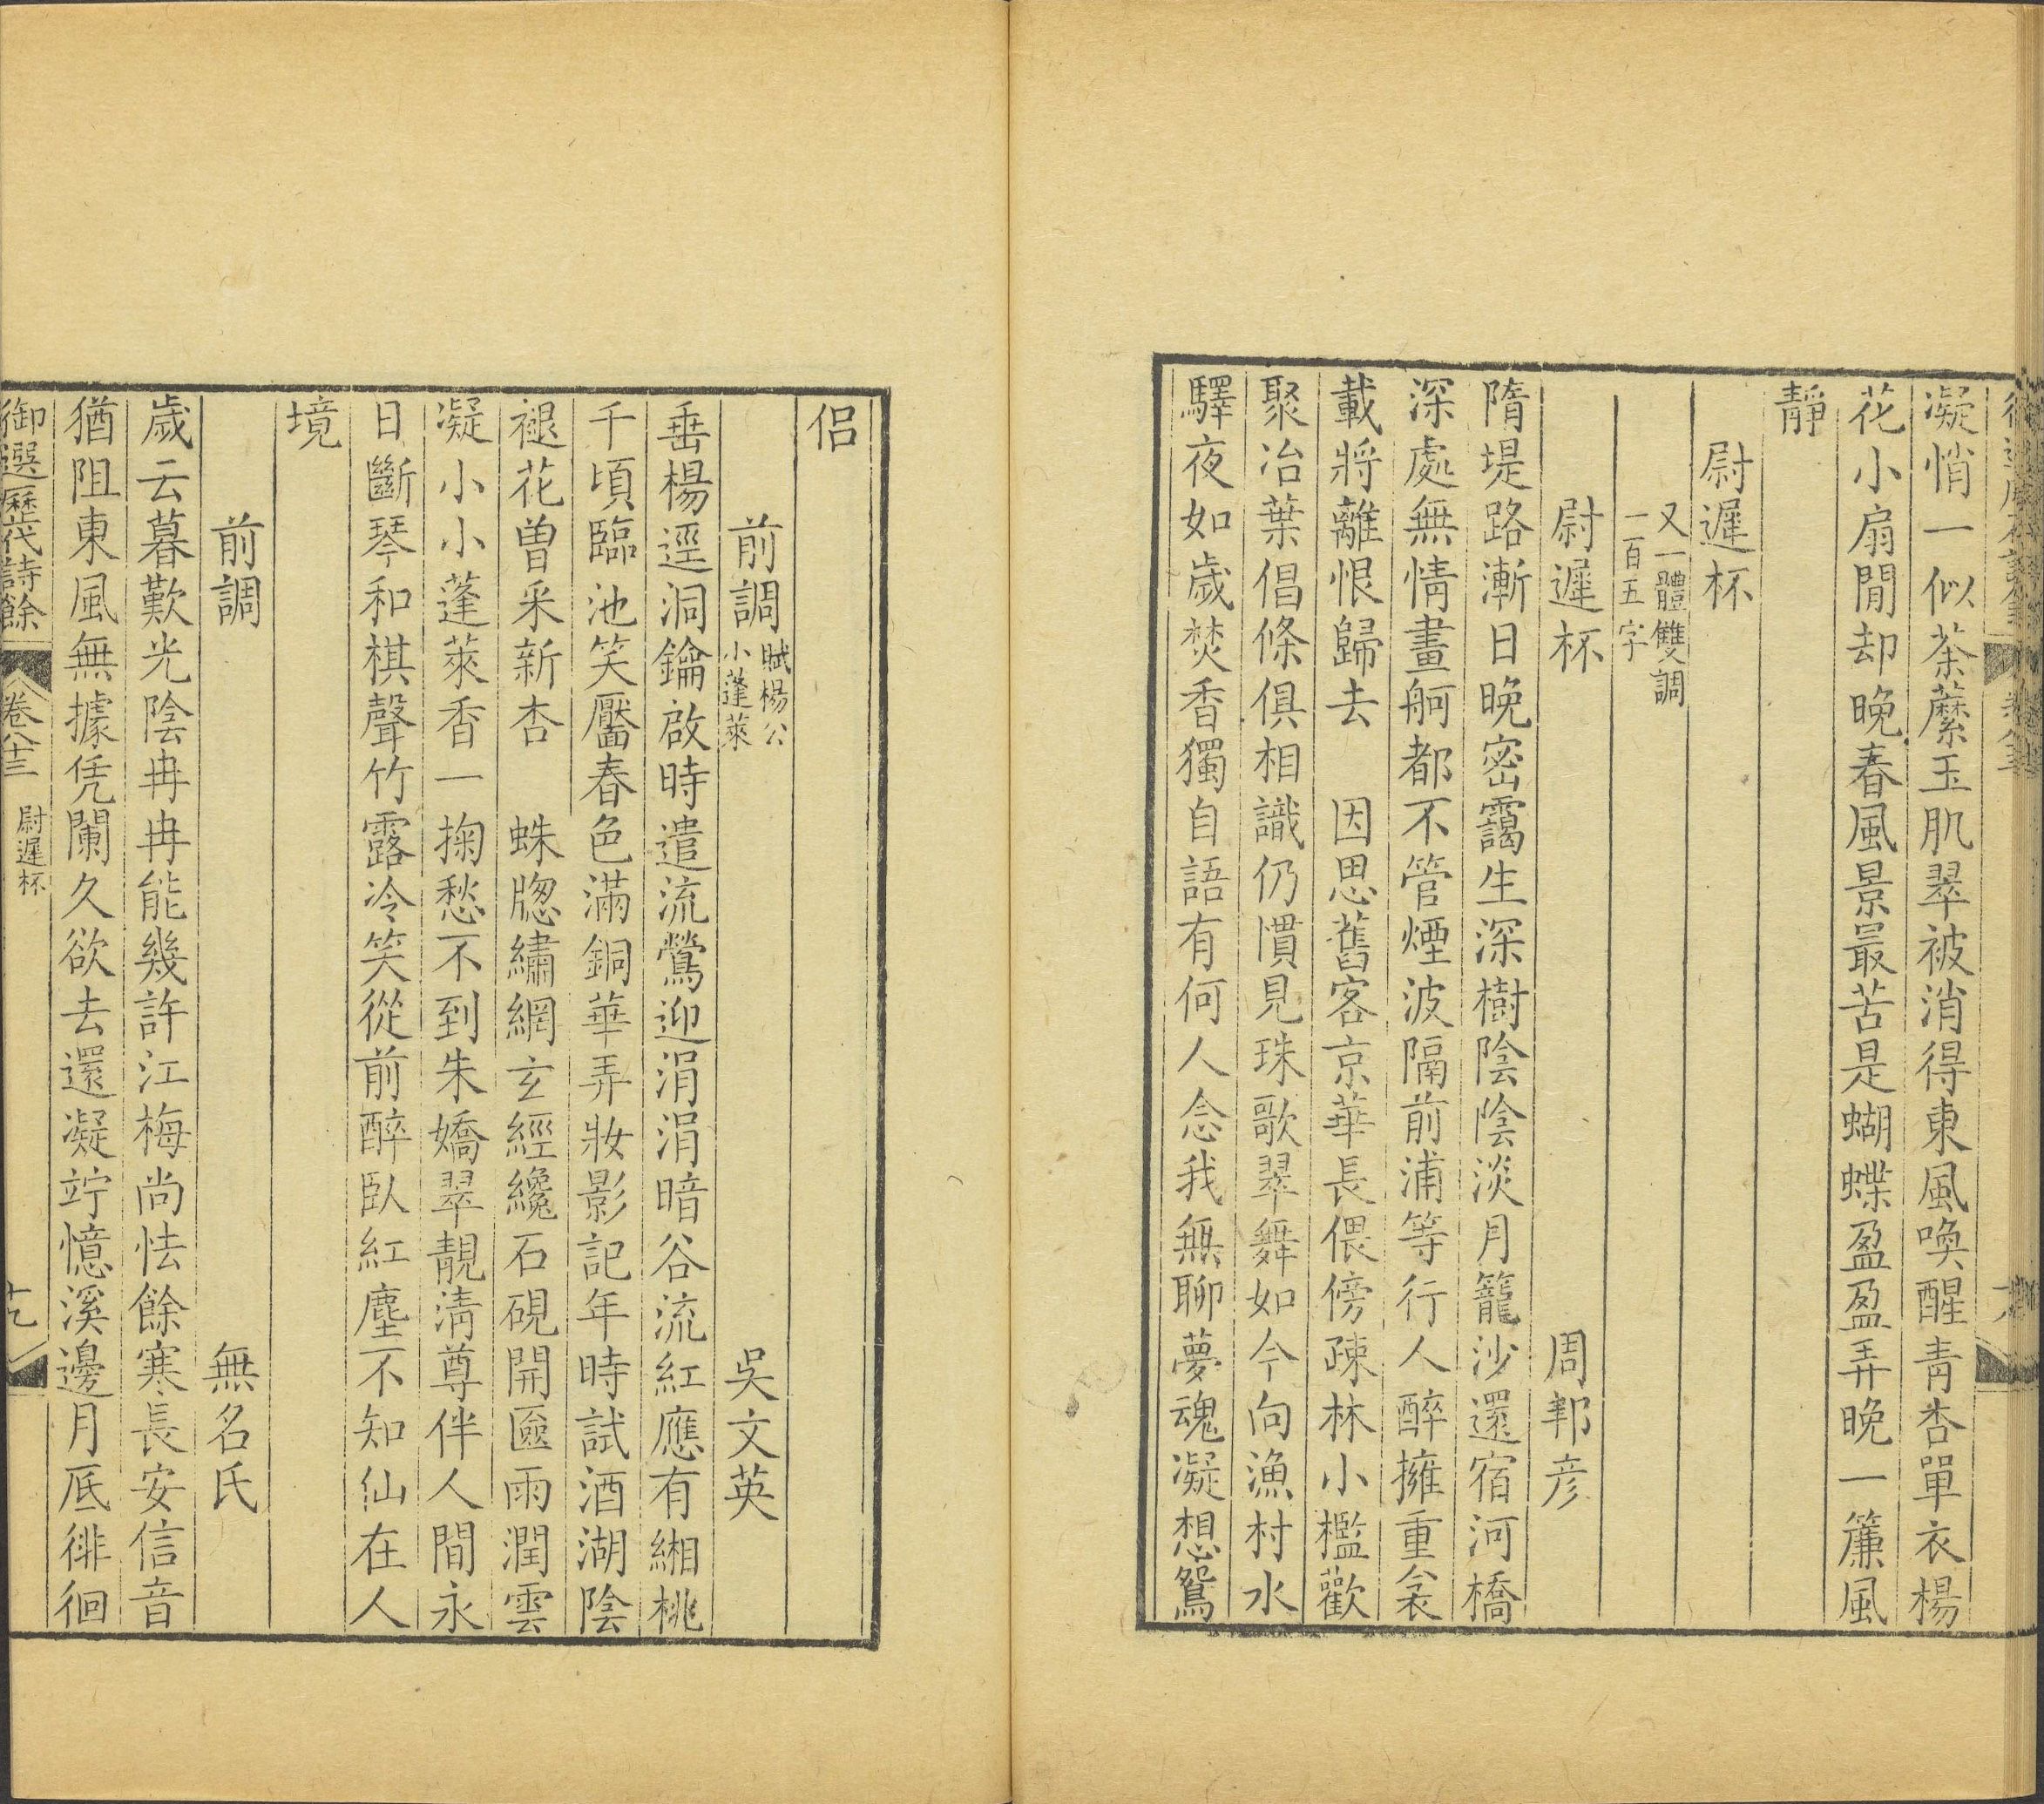 凝悄一似荼蘼玉肌翠被消得東風喚醒青杏單衣楊
花小扇閒却晚春風景最苦是蝴蝶盈盈弄晚一簾風
靜
尉遲杯
又一體雙調
一百五字
尉遲杯 周邦彦
隋堤路漸日晚密靄生深樹陰陰淡月籠沙還宿河橋
深處無情畫舸都不管煙波隔前浦等行人醉擁重衾
載將離恨歸去 因思舊客京華長偎傍疎林小檻歡
聚冶葉倡條俱相識仍慣見珠歌翠舞如今向漁村水
驛夜如歲焚香獨自語有何人念我無聊夢魂凝想鴛
侶
前調 賦楊公 吳文英
小蓬萊
垂楊逕洞鑰啟時遣流鶯迎涓涓暗谷流紅應有緗桃
千頃臨池笑靨春色滿銅華弄妝影記年時試酒湖陰
褪花曾采新杏 蛛牕繡網玄經纔石硯開匳雨潤雲
凝小小蓬萊香一掬愁不到朱嬌翠靚清尊伴人間永
日斷琴和棋聲竹露冷笑從前醉臥紅塵不知仙在人
境
前調 無名氏
歲云暮歎光陰冉冉能幾許江梅尚怯餘寒長安信音
猶阻東風無據凭闌久欲去還凝竚憶溪邊月底徘徊
御選歷代詩餘 卷八十三 尉遲杯